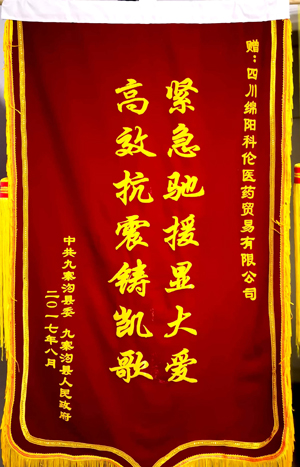 赠：四川绵阳科伦医药贸易有限公司
紧急驰援显大爱
高效抗震铸凯歌
中共九寨沟县委 九寨沟县人民政府
二〇一七年八月